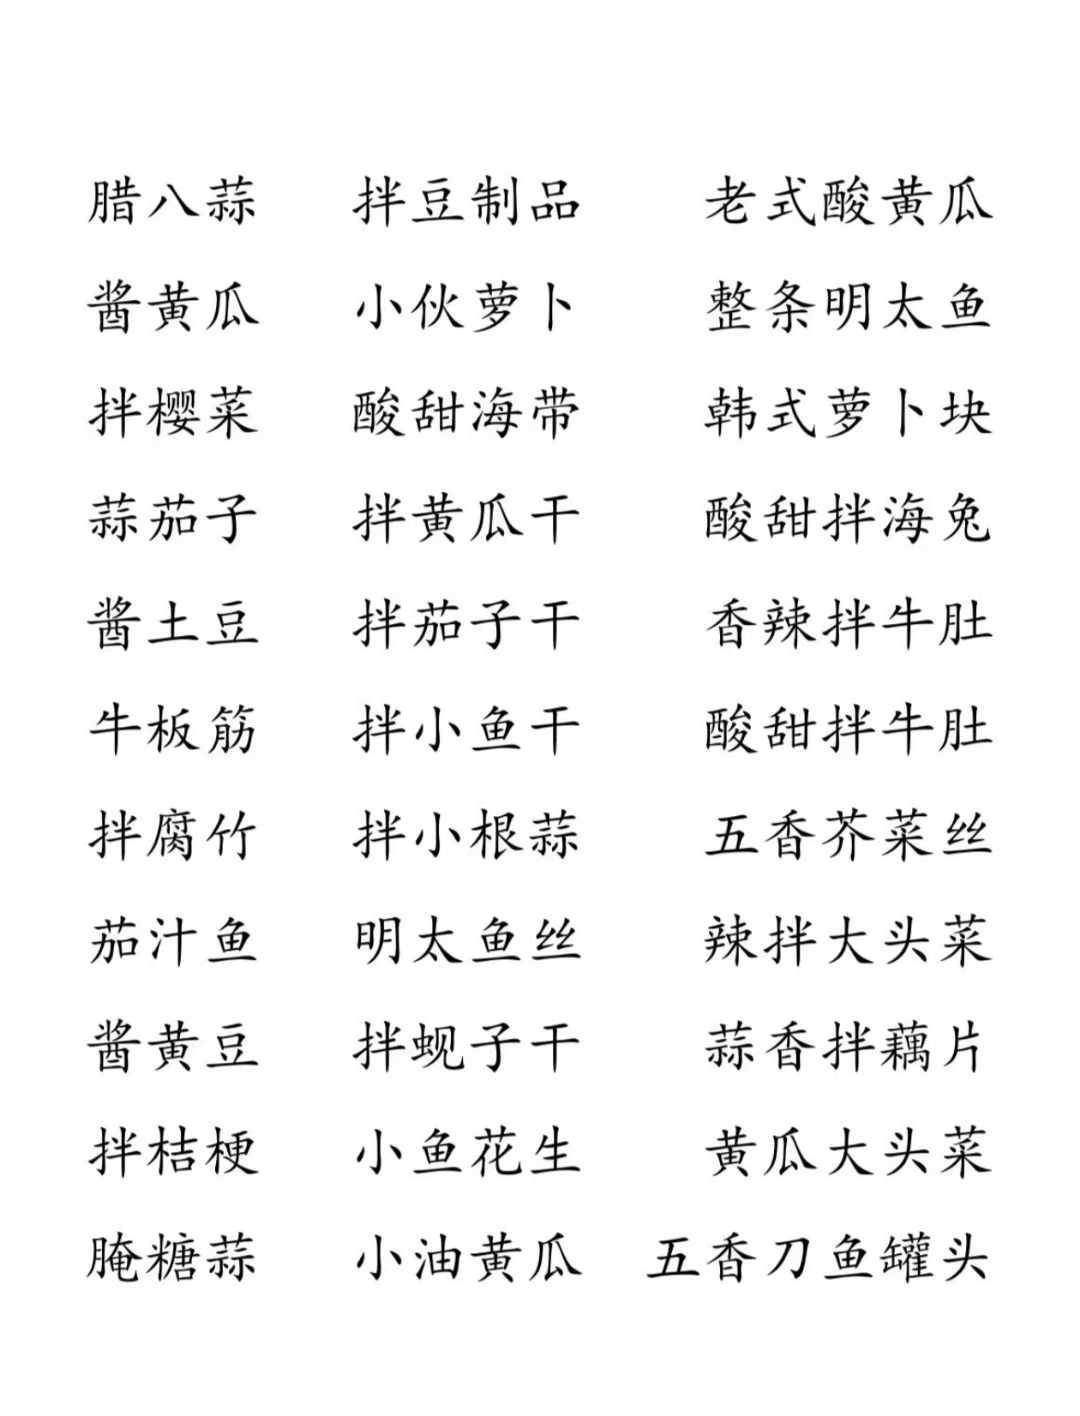 腊八蒜 拌豆制品 老式酸黄瓜
酱黄瓜 小伙萝卜 整条明太鱼
拌樱菜 酸甜海带 韩式萝卜块
蒜茄子 拌黄瓜干 酸甜拌海兔
酱土豆 拌茄子干 香辣拌牛肚
牛板筋 拌小鱼干 酸甜拌牛肚
拌腐竹 拌小根蒜 五香芥菜丝
茄汁鱼 明太鱼丝 辣拌大头菜
酱黄豆 拌蚬子干 蒜香拌藕片
拌桔梗 小鱼花生 黄瓜大头菜
腌糖蒜 小油黄瓜 五香刀鱼罐头